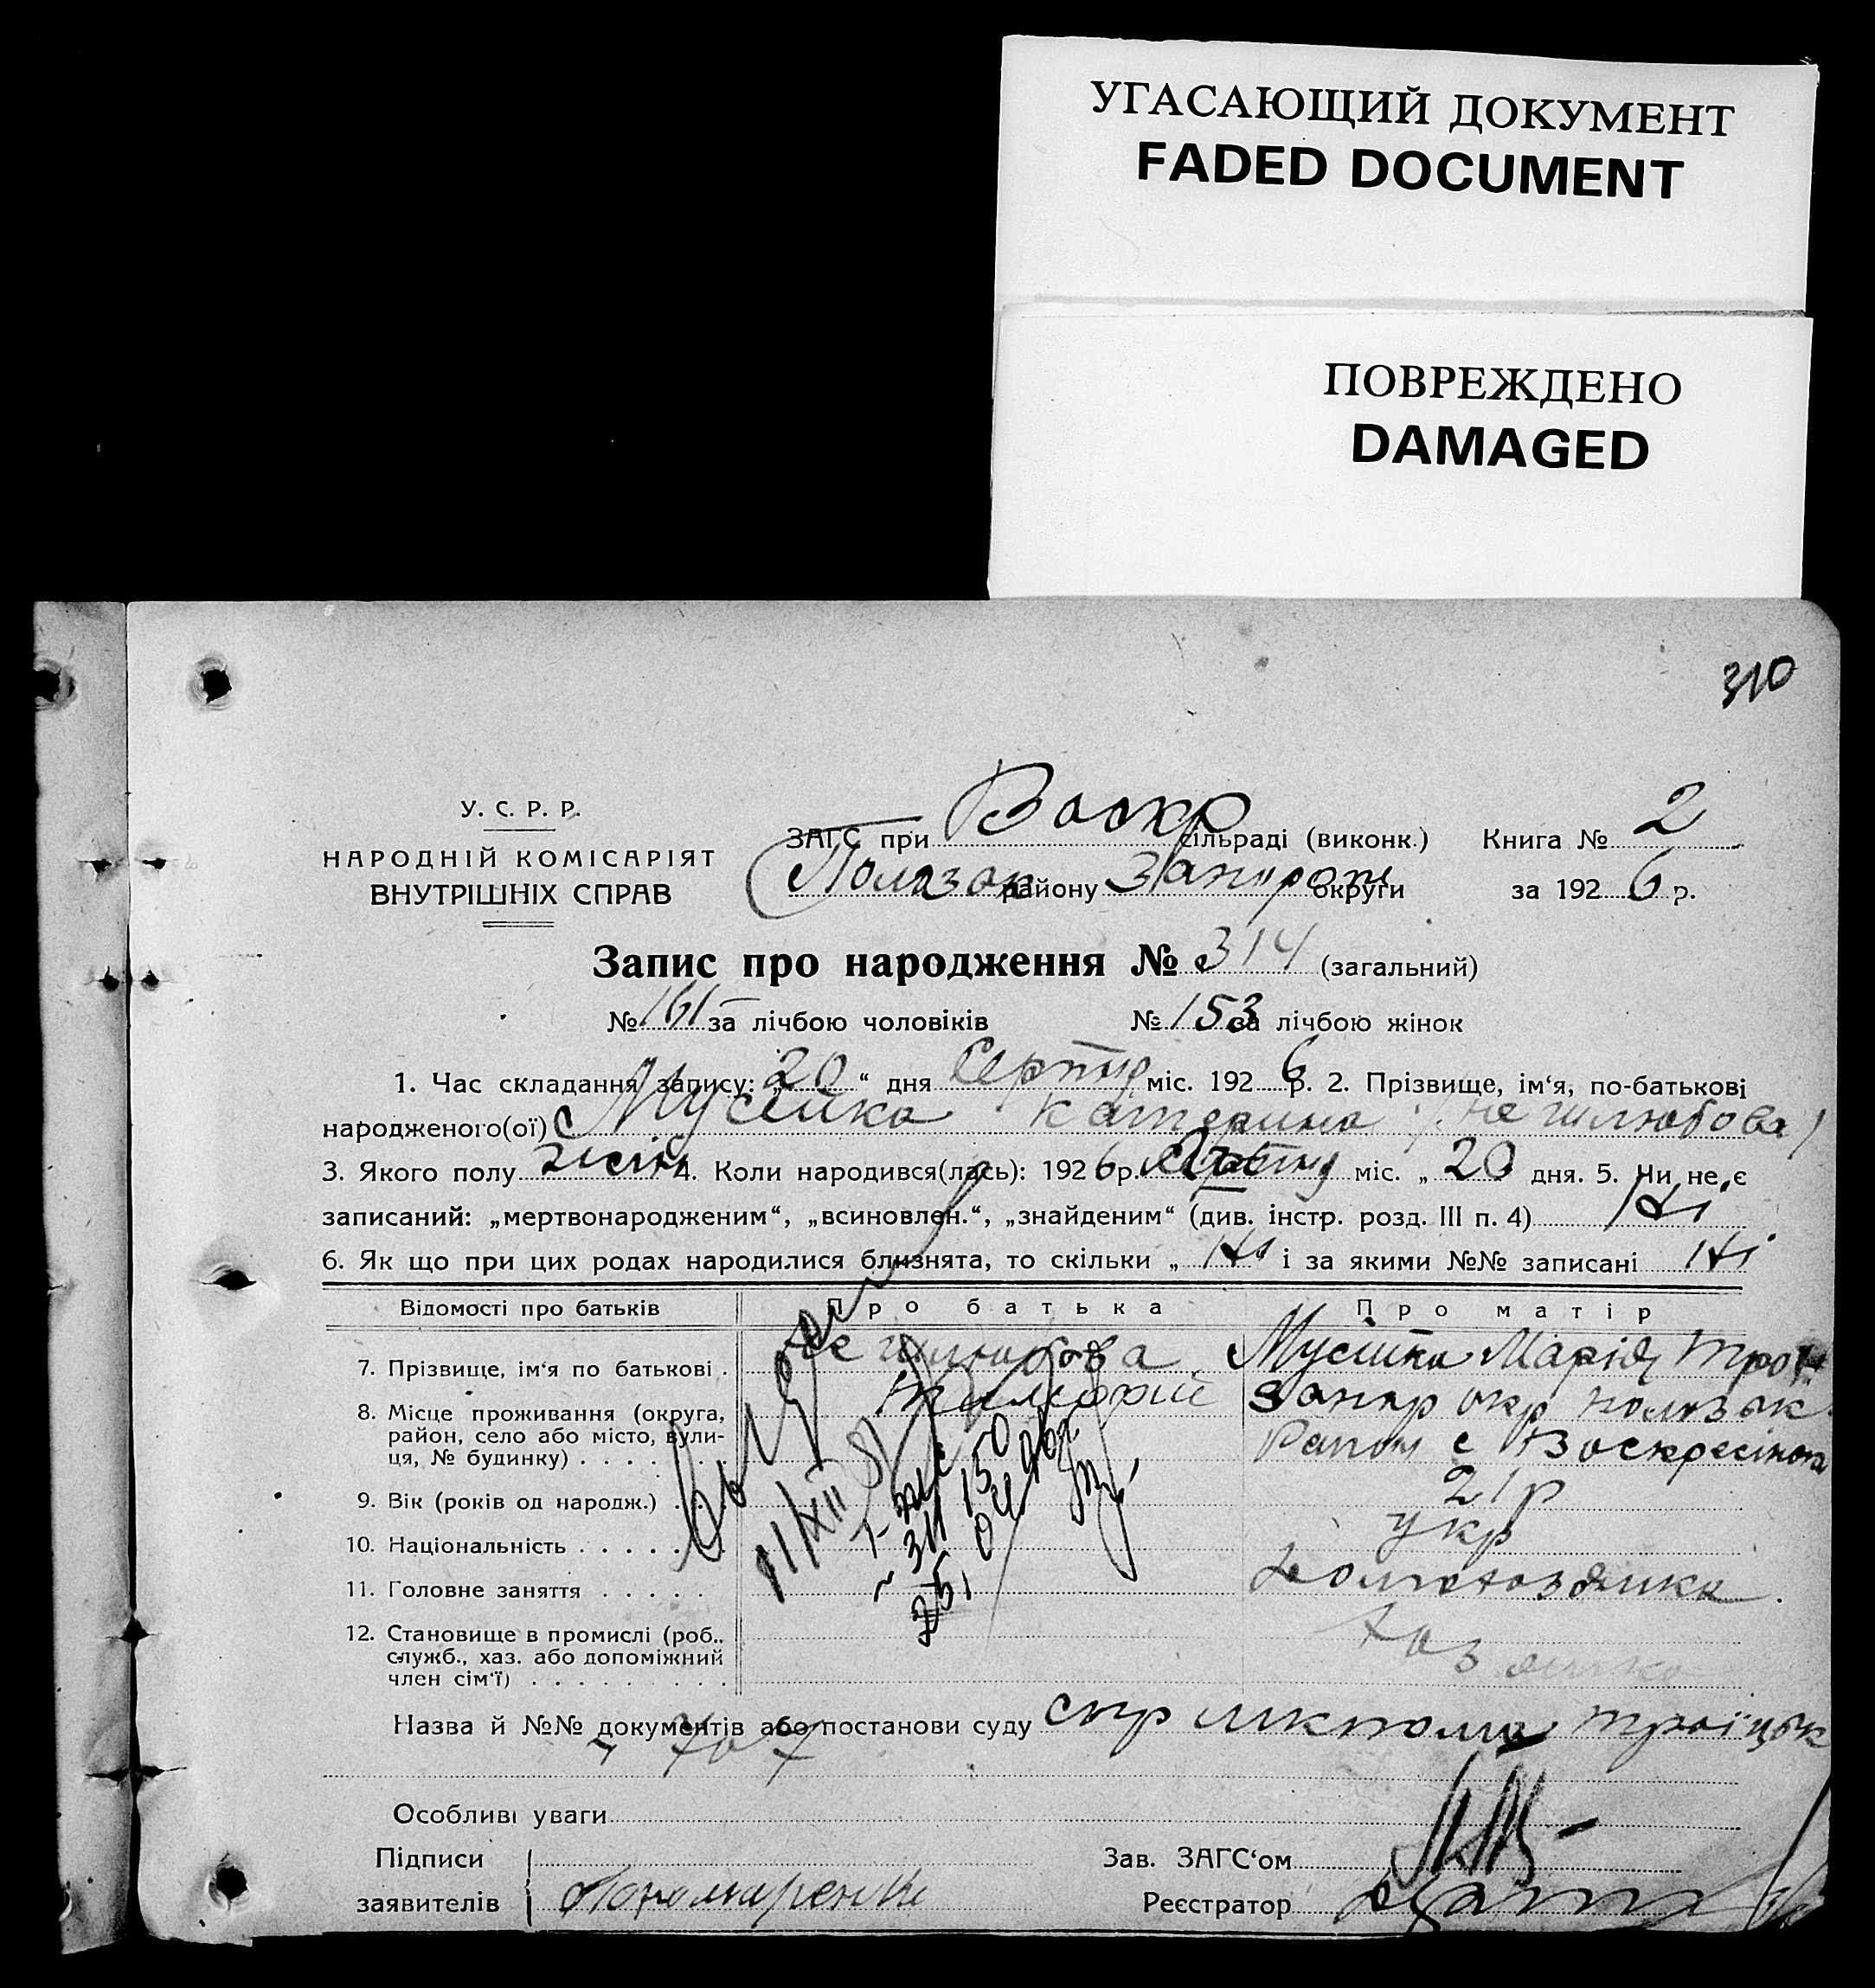 УГАСАЮЩИЙ ДОКУМЕНТ
FADED DOCUMENT
ПОВРЕЖДЕНО
DAMAGED
310
У. С. Р. Р.
НАРОДНІЙ КОМІСАРІЯТ
ВНУТРІШНІХ СПРАВ
ЗАГС при Воскр сільраді (виконк.) Книга № 2
району Запорож округи за 1926 р.
Запис про народження № 314 (загальний)
№ 161 за лічбою чоловіків № 153 за лічбою жінок
1. Час складання запису: „20“ дня Серпня міс. 1926 р. 2. Прізвище, ім‘я, по-батькові
народженого(ої) Мусійка Катерина
3. Якого полу жін 4. Коли народився(лась): 1926 р. Серпня міс. „20 дня. 5. Чи не є
записаний: „мертвонародженим“, „всиновлен.“, „знайденим“ (див. інстр. розд. III п. 4) Ні
6. Як що при цих родах народилися близнята, то скільки „Ні і за якими №№ записані Ні
Відомості про батьків Про батька Про матір
7. Прізвище, ім‘я по батькові . Мусійка Марія
8. Місце проживання (округа, Запор окр
район, село або місто, вули- с Воскресінка
ця, № будинку) . . . . . . .
9. Вік (років од народж.) . 21 р
10. Національність . . . . . . укр
11. Головне заняття . . . . .
12. Становище в промислі (роб..
служб., хаз. або допоміжний
член сім‘ї) . . . . . . . . .
Назва й №№ документів або постанови суду
№ 707
Особливі уваги
Підписи Зав. ЗАГС‘ом
заявителів Пономаренко Реєстратор